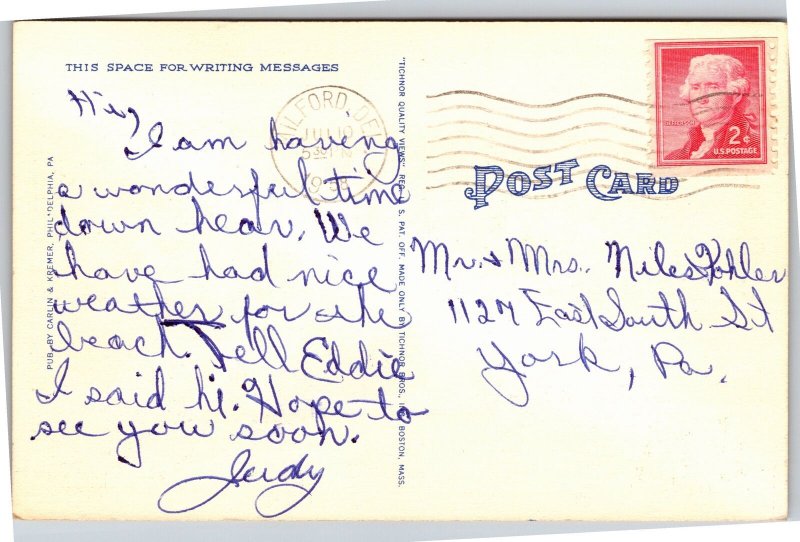 THIS SPACE FOR WRITING MESSAGES
Hi,
I am having
a wonderful time
down hear. We
have had nice
weather for the
beach. Tell Eddie
I said hi. Hope to
see you soon.
Judy
PUB. BY CARLIN & KREMER, PHIL'DELPHIA, PA
"TICHNOR QUALITY VIEWS" REG. U. S. PAT. OFF. MADE ONLY BY TICHNOR BROS., BOSTON, MASS.
MILFORD, DEL
JUL 10
POST CARD
JEFFERSON
2¢
U.S. POSTAGE
Mr. & Mrs. Niles Kohler
1127 East South St
York, Pa.